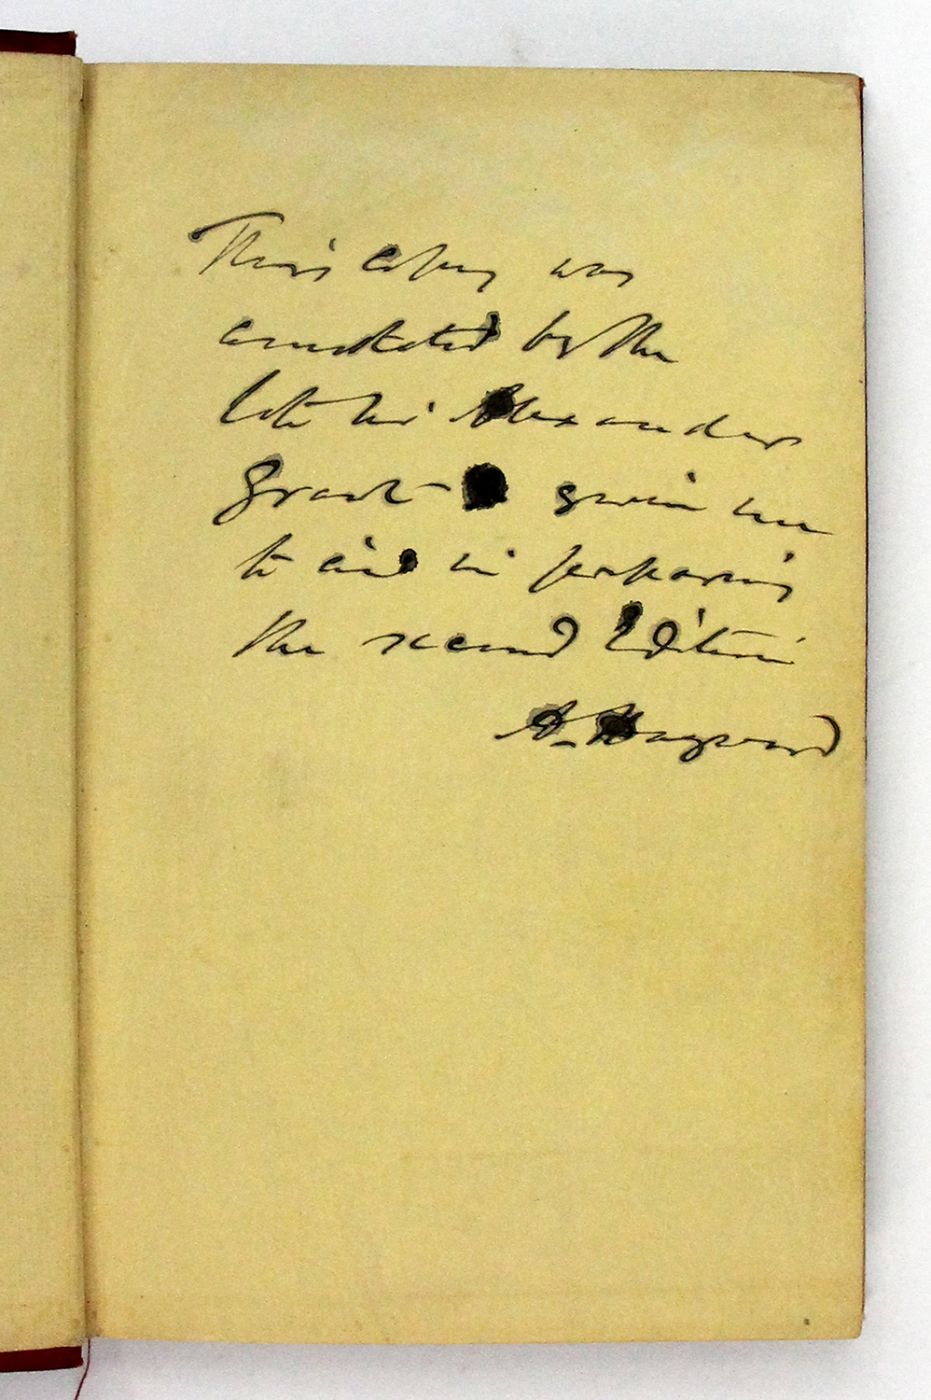 This copy was
annotated by the
late Sir Alexander
Grant & given me
to aid in preparing
the second Edition
A. Hayward